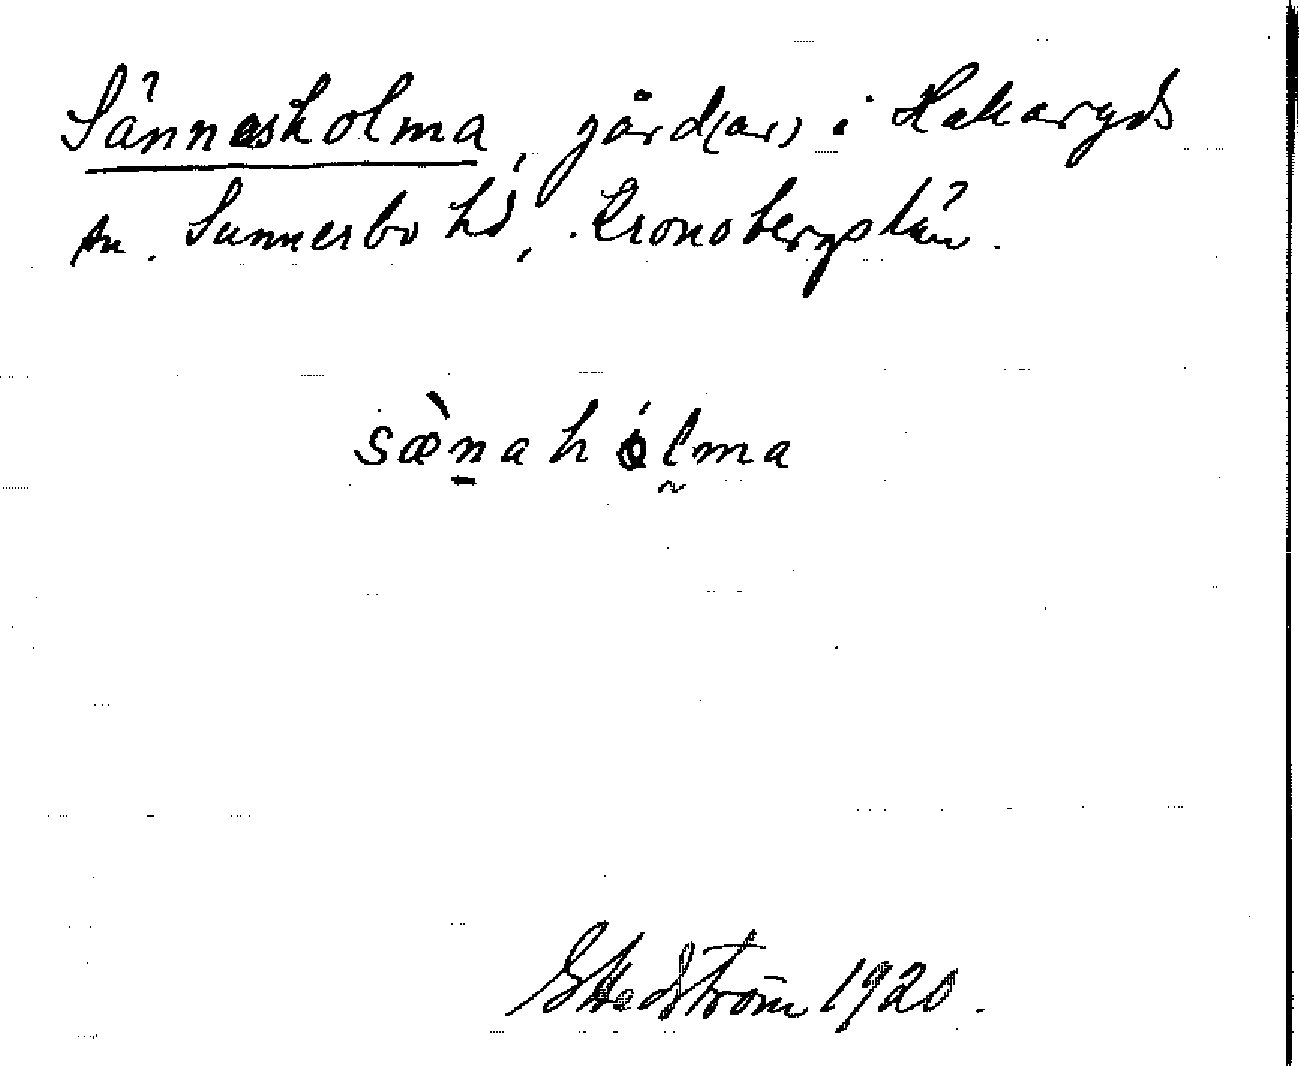 Sännesholma, gård(ar) i Hakaryds
sn. Sunnerbo hd, Kronobergs län.
sæ̀nahólma
G Hedström 1920.